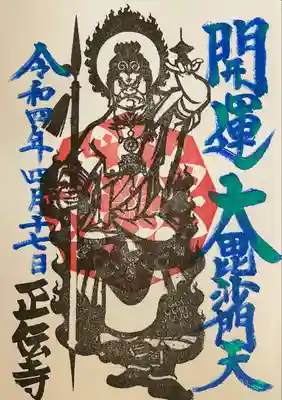 開運大毘沙門天
令和四年四月二十七日
正伝寺